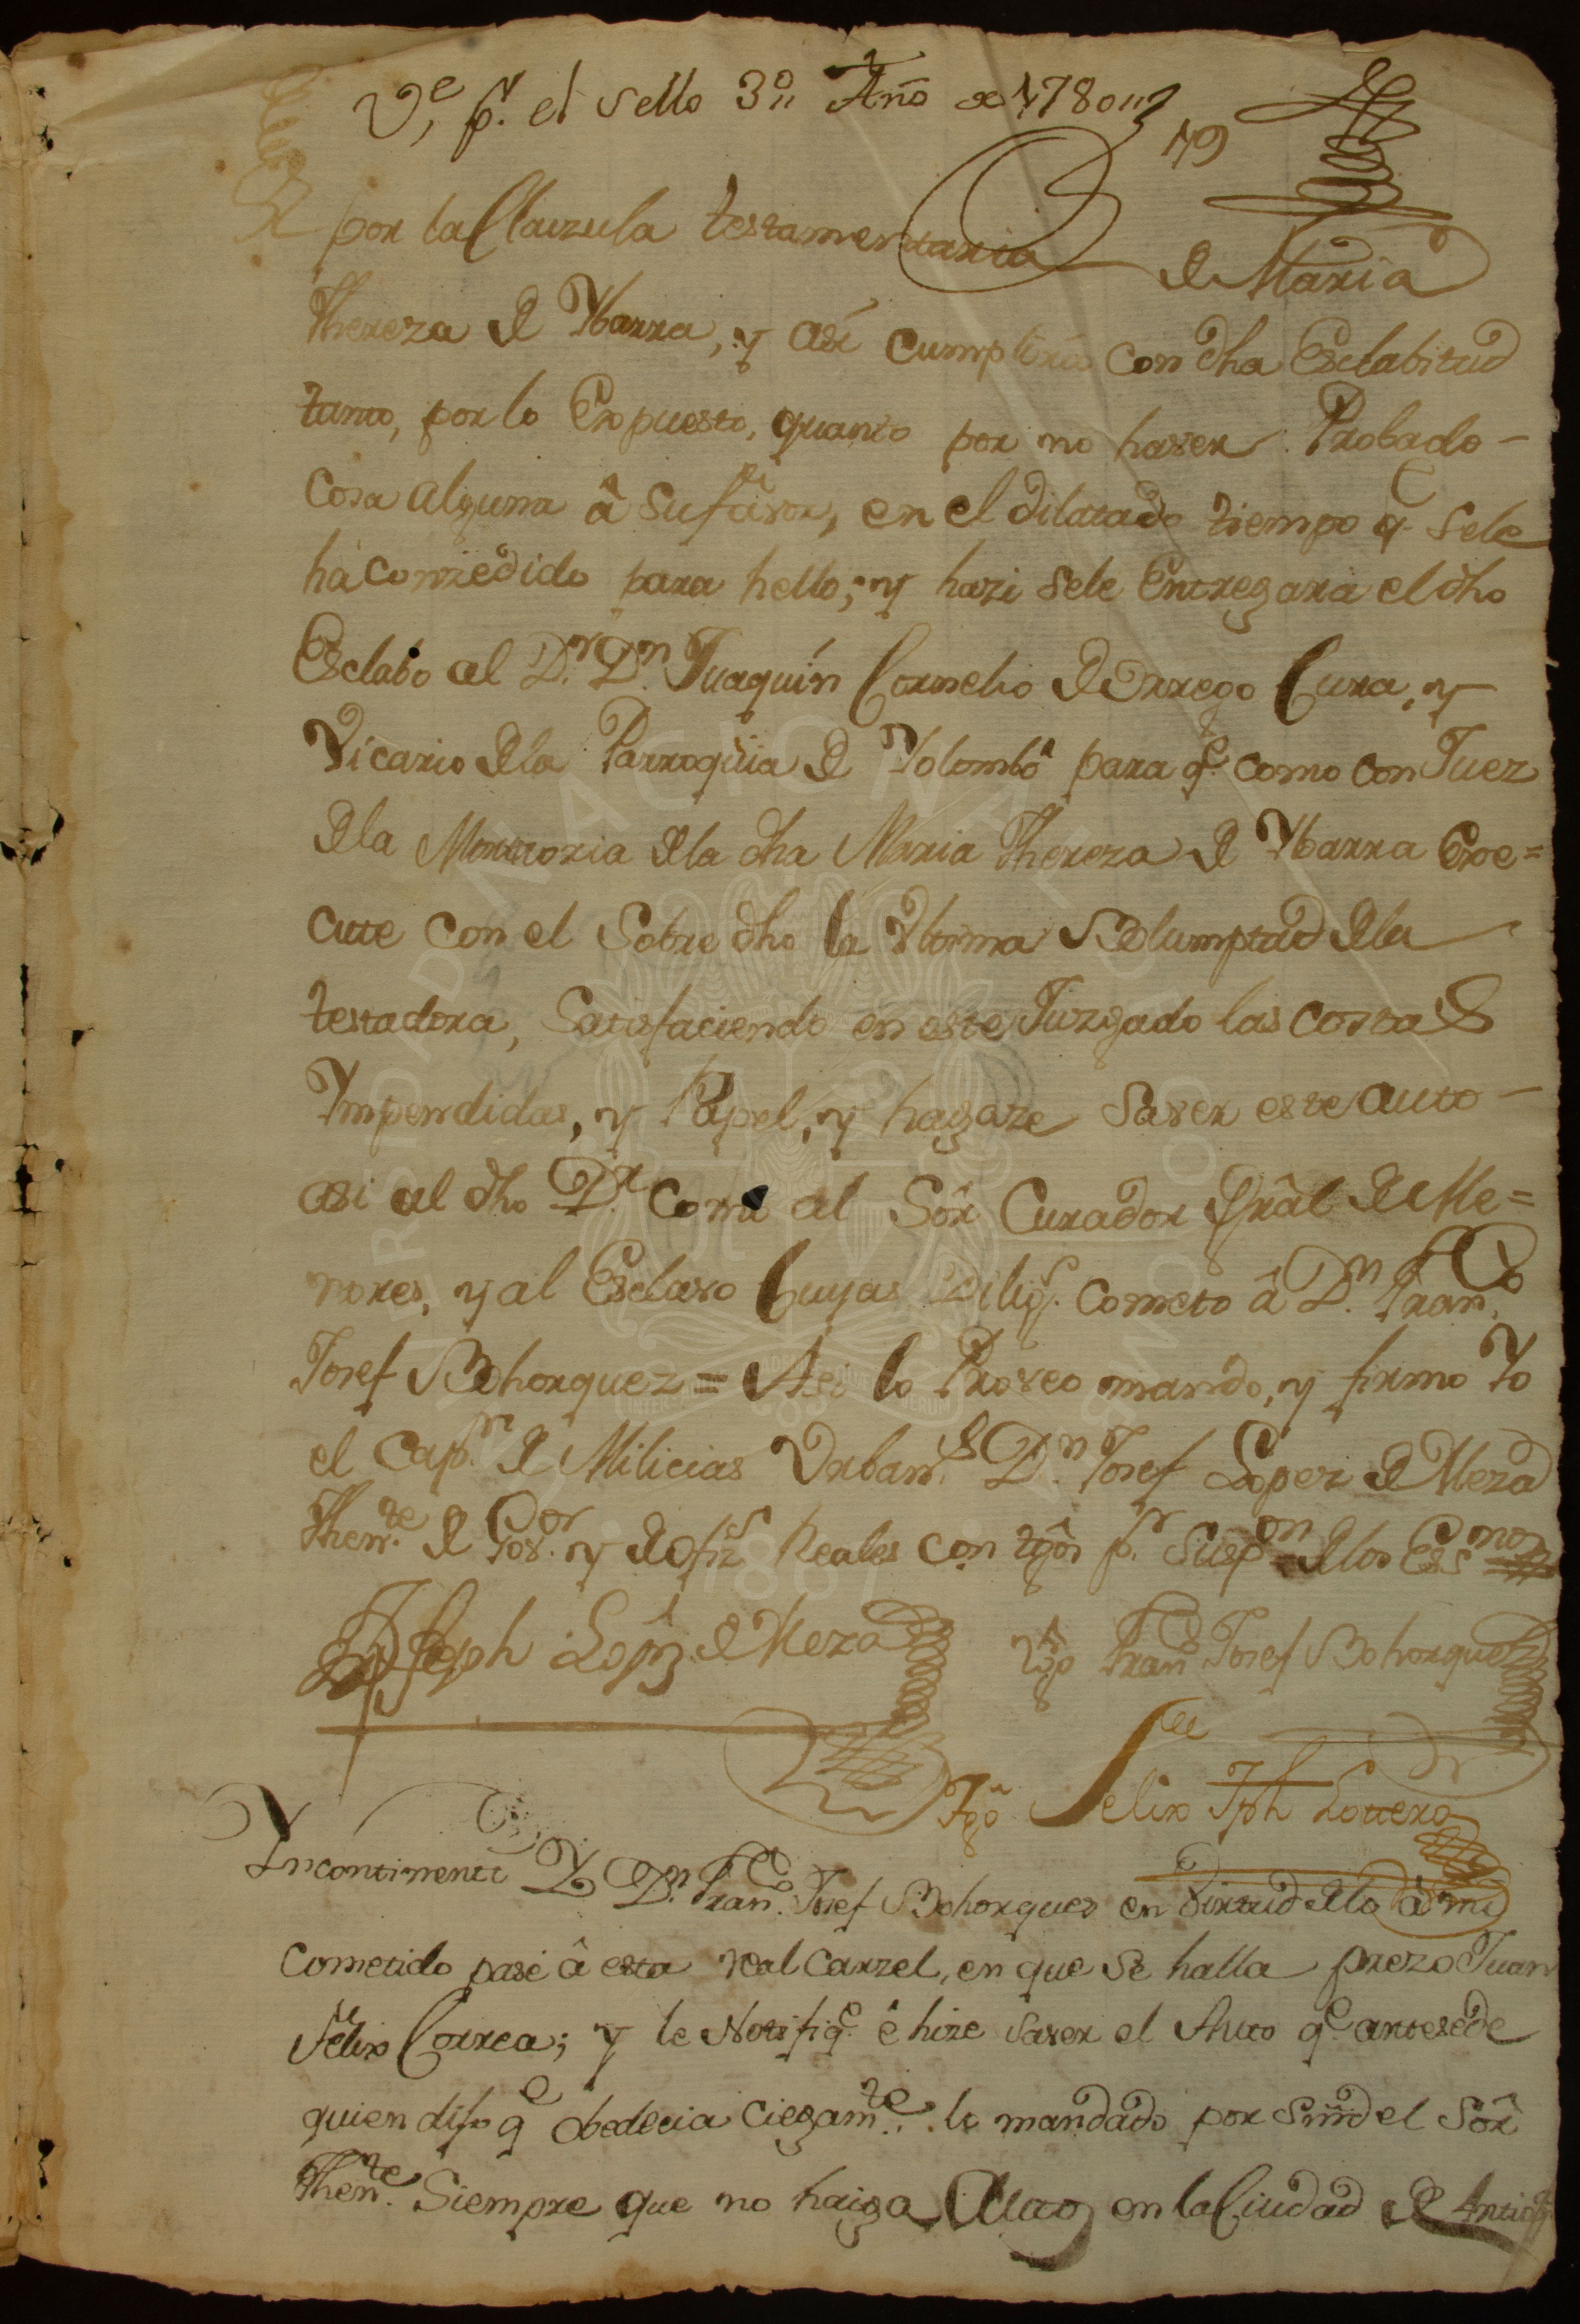 Ve, pr. el sello 3o,, Año de 1780,,
79
por la Clauzula testamentaria de Maria
Thereza de Ybarra, y asi cumplira con dha Esclabitud
tanto, por lo Expuesto, quanto por no haver Probado -
Cosa alguna â su favor, en el dilatado tiempo q. sele
há conzedido para hello; y hazi sele Entregara el dho
Esclabo al Dr. Dn. Juaquin Cornelio de Orrego Cura, y
Vicario de la Parroquia de Yolombô para qe. como con Juez
de la Mortuoria de la dha Maria Thereza de Ybarra Exe=
cute con el Sobre dho la Vltima Bolumptad de la
testadora, Satisfaciendo en este Juzgado las costas
Ympendidas, y Papel, y hagaze saver este auto -
asi al dho Dr. como al Sôr Curador Grâl de Me=
nores, y al Esclavo Cuyas Diligs. Cometo â Dn. Franco.
Josef Bohorquez = Asi lo Proveo mando, y firmo Yo
el Capn. de Milicias Vrbans. Dn. Josef Lopez de Meza
Thente. de Govor. y de Ofizs. Reales con tgôs pr. Suspon. de los Essnos
Joseph Lopz de Meza tgo Franco Josef Bohorquez
Tgo. Felix Jph Lottero
Yncontinenti Yo Dn. Franco. Josef Bohorquez en virtud de lo â mi
Cometido pasé â esta real Carzel, en que se halla prezo Juan
Felix Correa; y le Notifiqe. ê hize saver el Auto qe. antesede
quien dijo qe obedecia Ciegamte. lo mandado por Smrd el Sôr
Thente. Siempre que no haiga Auto en la Ciudad de Antioqa